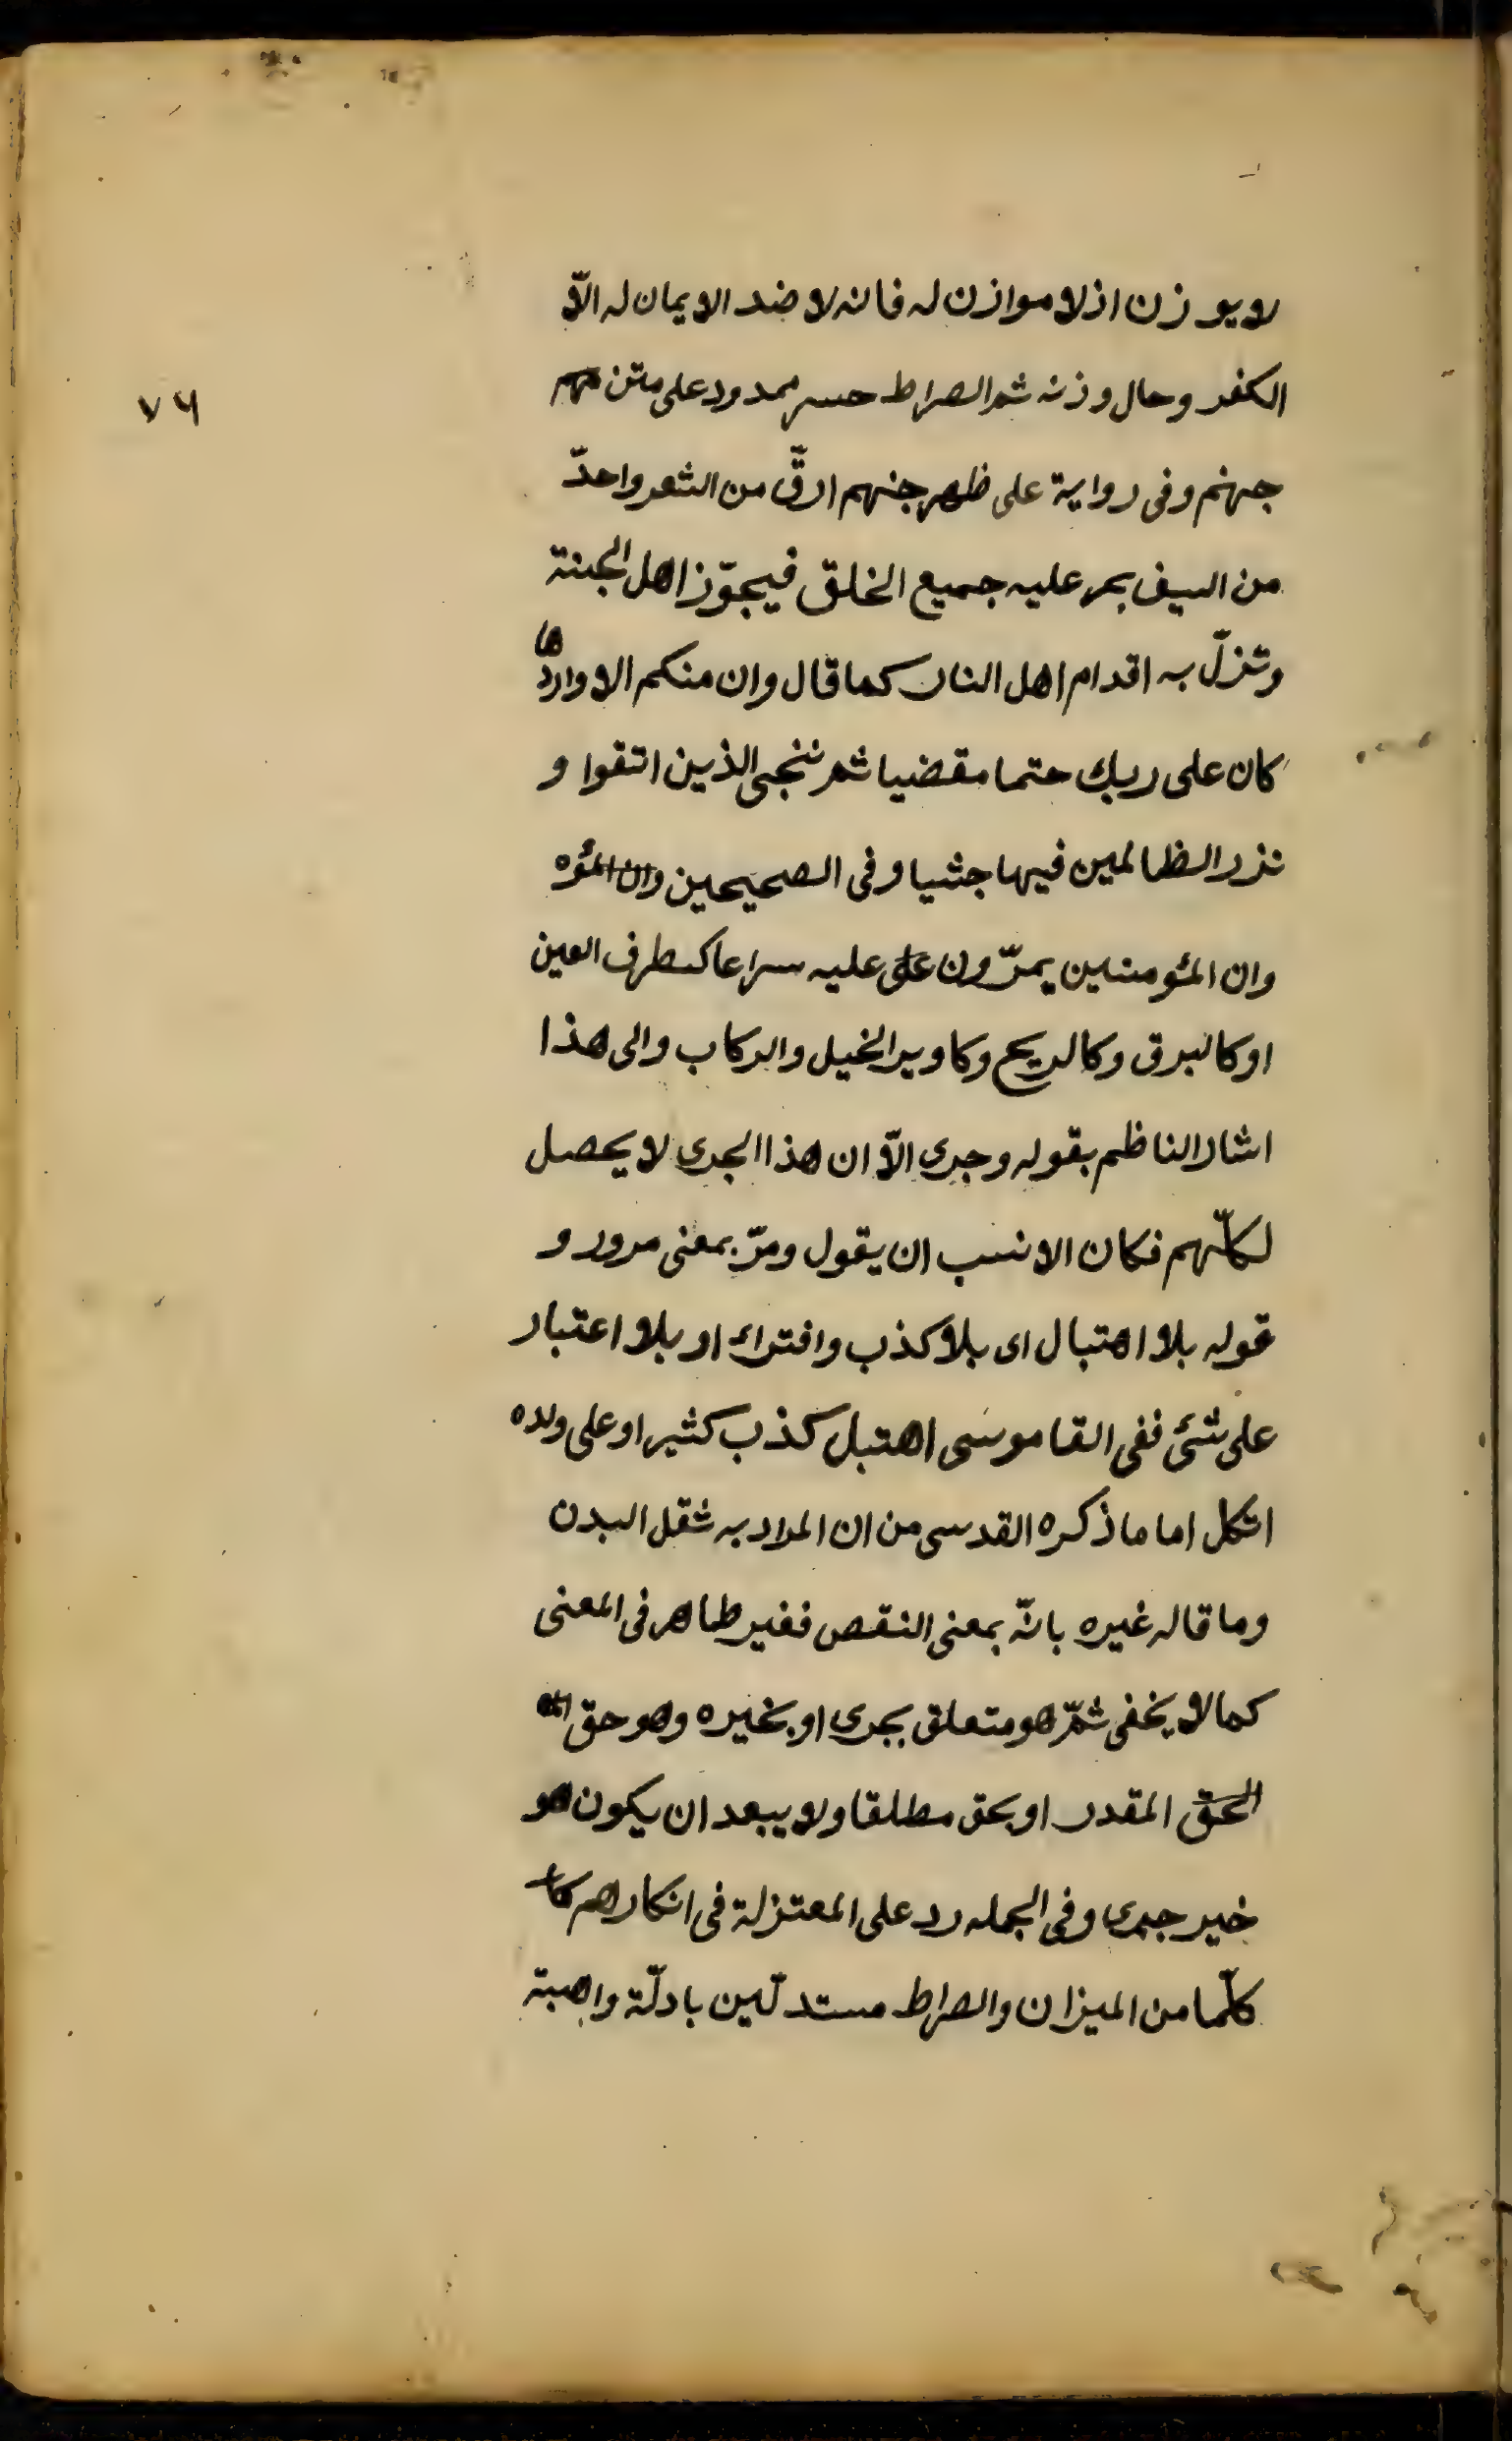 لا يوزن اذ لا موازن له فانه لا ضد الايمان له الاّ
الكفر وحال وزنه ثم الصراط جسر ممدود على متن
جهنم وفى رواية على ظهر جهنم ادقّ من الشعر واحدّ
من السيف يمر عليه جميع الخلق فيجوّز اهل الجنة
وتزلّ به اقدام اهل النار كما قال وان منكم الا واردها
كان على ربك حتما مقضيا ثم ننجى الذين اتقوا و
نذر الظالمين فيها جثيا وفى الصحيحين وان المؤه
وان المؤمنين يمرّون على عليه سراعا كطرف العين
او كالبرق وكالريح وكاوير الخيل والركاب والى هذا
اشار الناظم بقوله وجرى الاّ ان هذا الجرى لا يحصل
لكلّهم فكان الانسب ان يقول ومرّ بمعنى مرور و
قوله بلا اهتبال اى بلا كذب وافتراء او بلا اعتبار
على شئ ففى القاموس اهتبل كذب كثيرا وعلى ولده
اتكل اما ما ذكره القدسى من ان المراد به ثقل البدن
وما قاله غيره بانّه بمعنى النقص فغير ظاهر فى المعنى
كما لا يخفى ثمّ هو متعلق بجرى او بغيره وهو حق
الحق المقدر او بحق مطلقا ولا يبعد ان يكون هو
خير جرى وفى الجمله رد على المعتزلة فى انكارهم
كلّما من الميزان والصراط مستدلّين بادلّة واهية
٧٦